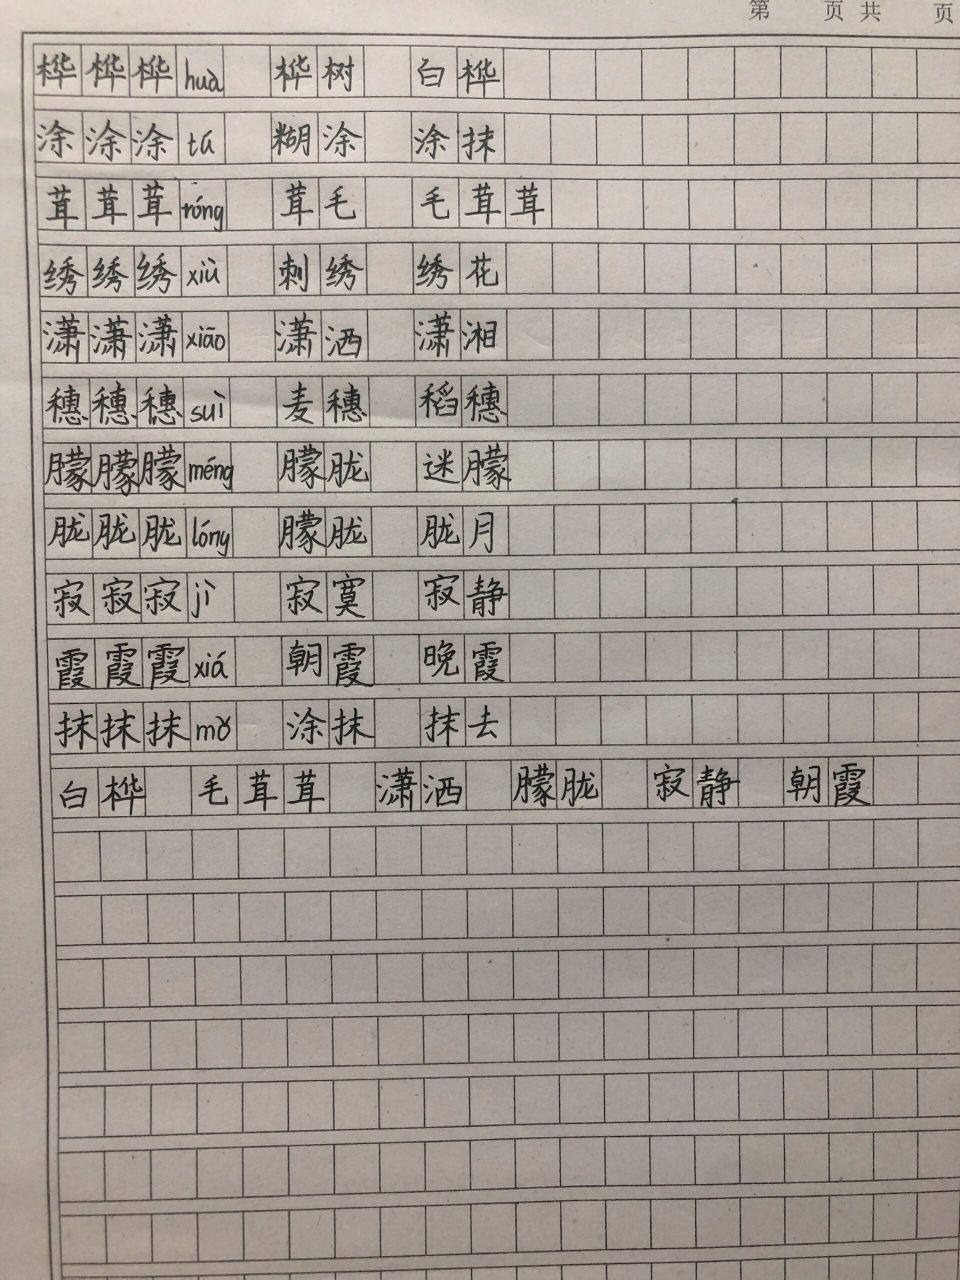 第 页 共 页
桦桦桦huà 桦树 白桦
涂涂涂tú 糊涂 涂抹
茸茸茸róng 茸毛 毛茸茸
绣绣绣xiù 刺绣 绣花
潇潇潇xiāo 潇洒 潇湘
穗穗穗suì 麦穗 稻穗
朦朦朦méng 朦胧 迷朦
胧胧胧lóng 朦胧 胧月
寂寂寂jì 寂寞 寂静
霞霞霞xiá 朝霞 晚霞
抹抹抹mǒ 涂抹 抹去
白桦 毛茸茸 潇洒 朦胧 寂静 朝霞